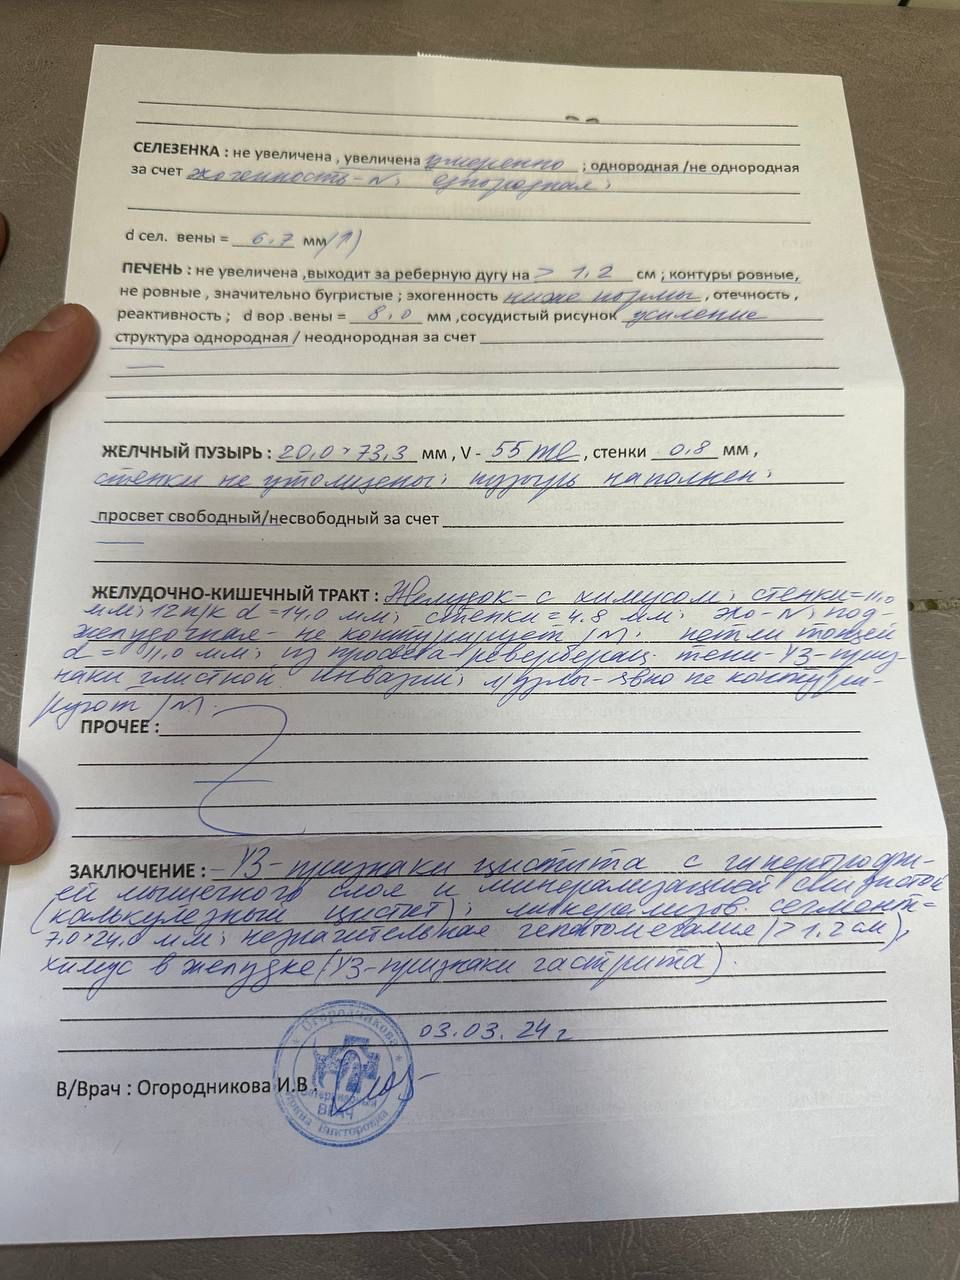 СЕЛЕЗЕНКА : не увеличена , увеличена умеренно ; однородная /не однородная
за счет эхогенность - N; однородная;
d сел. вены = 6,7 мм (↑)
ПЕЧЕНЬ : не увеличена ,выходит за реберную дугу на > 1,2 см ; контуры ровные,
не ровные , значительно бугристые ; эхогенность ниже нормы , отечность ,
реактивность ; d вор .вены = 8,0 мм ,сосудистый рисунок усиление
структура однородная / неоднородная за счет
—
ЖЕЛЧНЫЙ ПУЗЫРЬ : 20,0 × 73,3 мм , V - 55 ml , стенки 0,8 мм ,
стенки не утолщены; пузырь наполнен;
просвет свободный/несвободный за счет
—
ЖЕЛУДОЧНО-КИШЕЧНЫЙ ТРАКТ : Желудок - с химусом; стенки = 11,0
мм; 12п/к d = 14,0 мм; стенки = 4,8 мм; эхо - N; под-
желудочная - не контурирует (N); петли тощей
d = 11,0 мм; из просвета реверберац. тени - УЗ-приз-
наки глистной инвазии; л/узлы - явно не контури-
руют (N).
ПРОЧЕЕ :
ЗАКЛЮЧЕНИЕ : - УЗ-признаки цистита с гипертрофи-
ей мышечного слоя и минерализацией слизистой
(калькулезный цистит); минерализов. сегмент =
7,0 × 24,0 мм; незначительная гепатомегалия (> 1,2 см),
химус в желудке (УЗ-признаки гастрита).
03.03.24 г
В/Врач : Огородникова И.В .
Огородникова
Ветеринарный
ВРАЧ
Викторовна